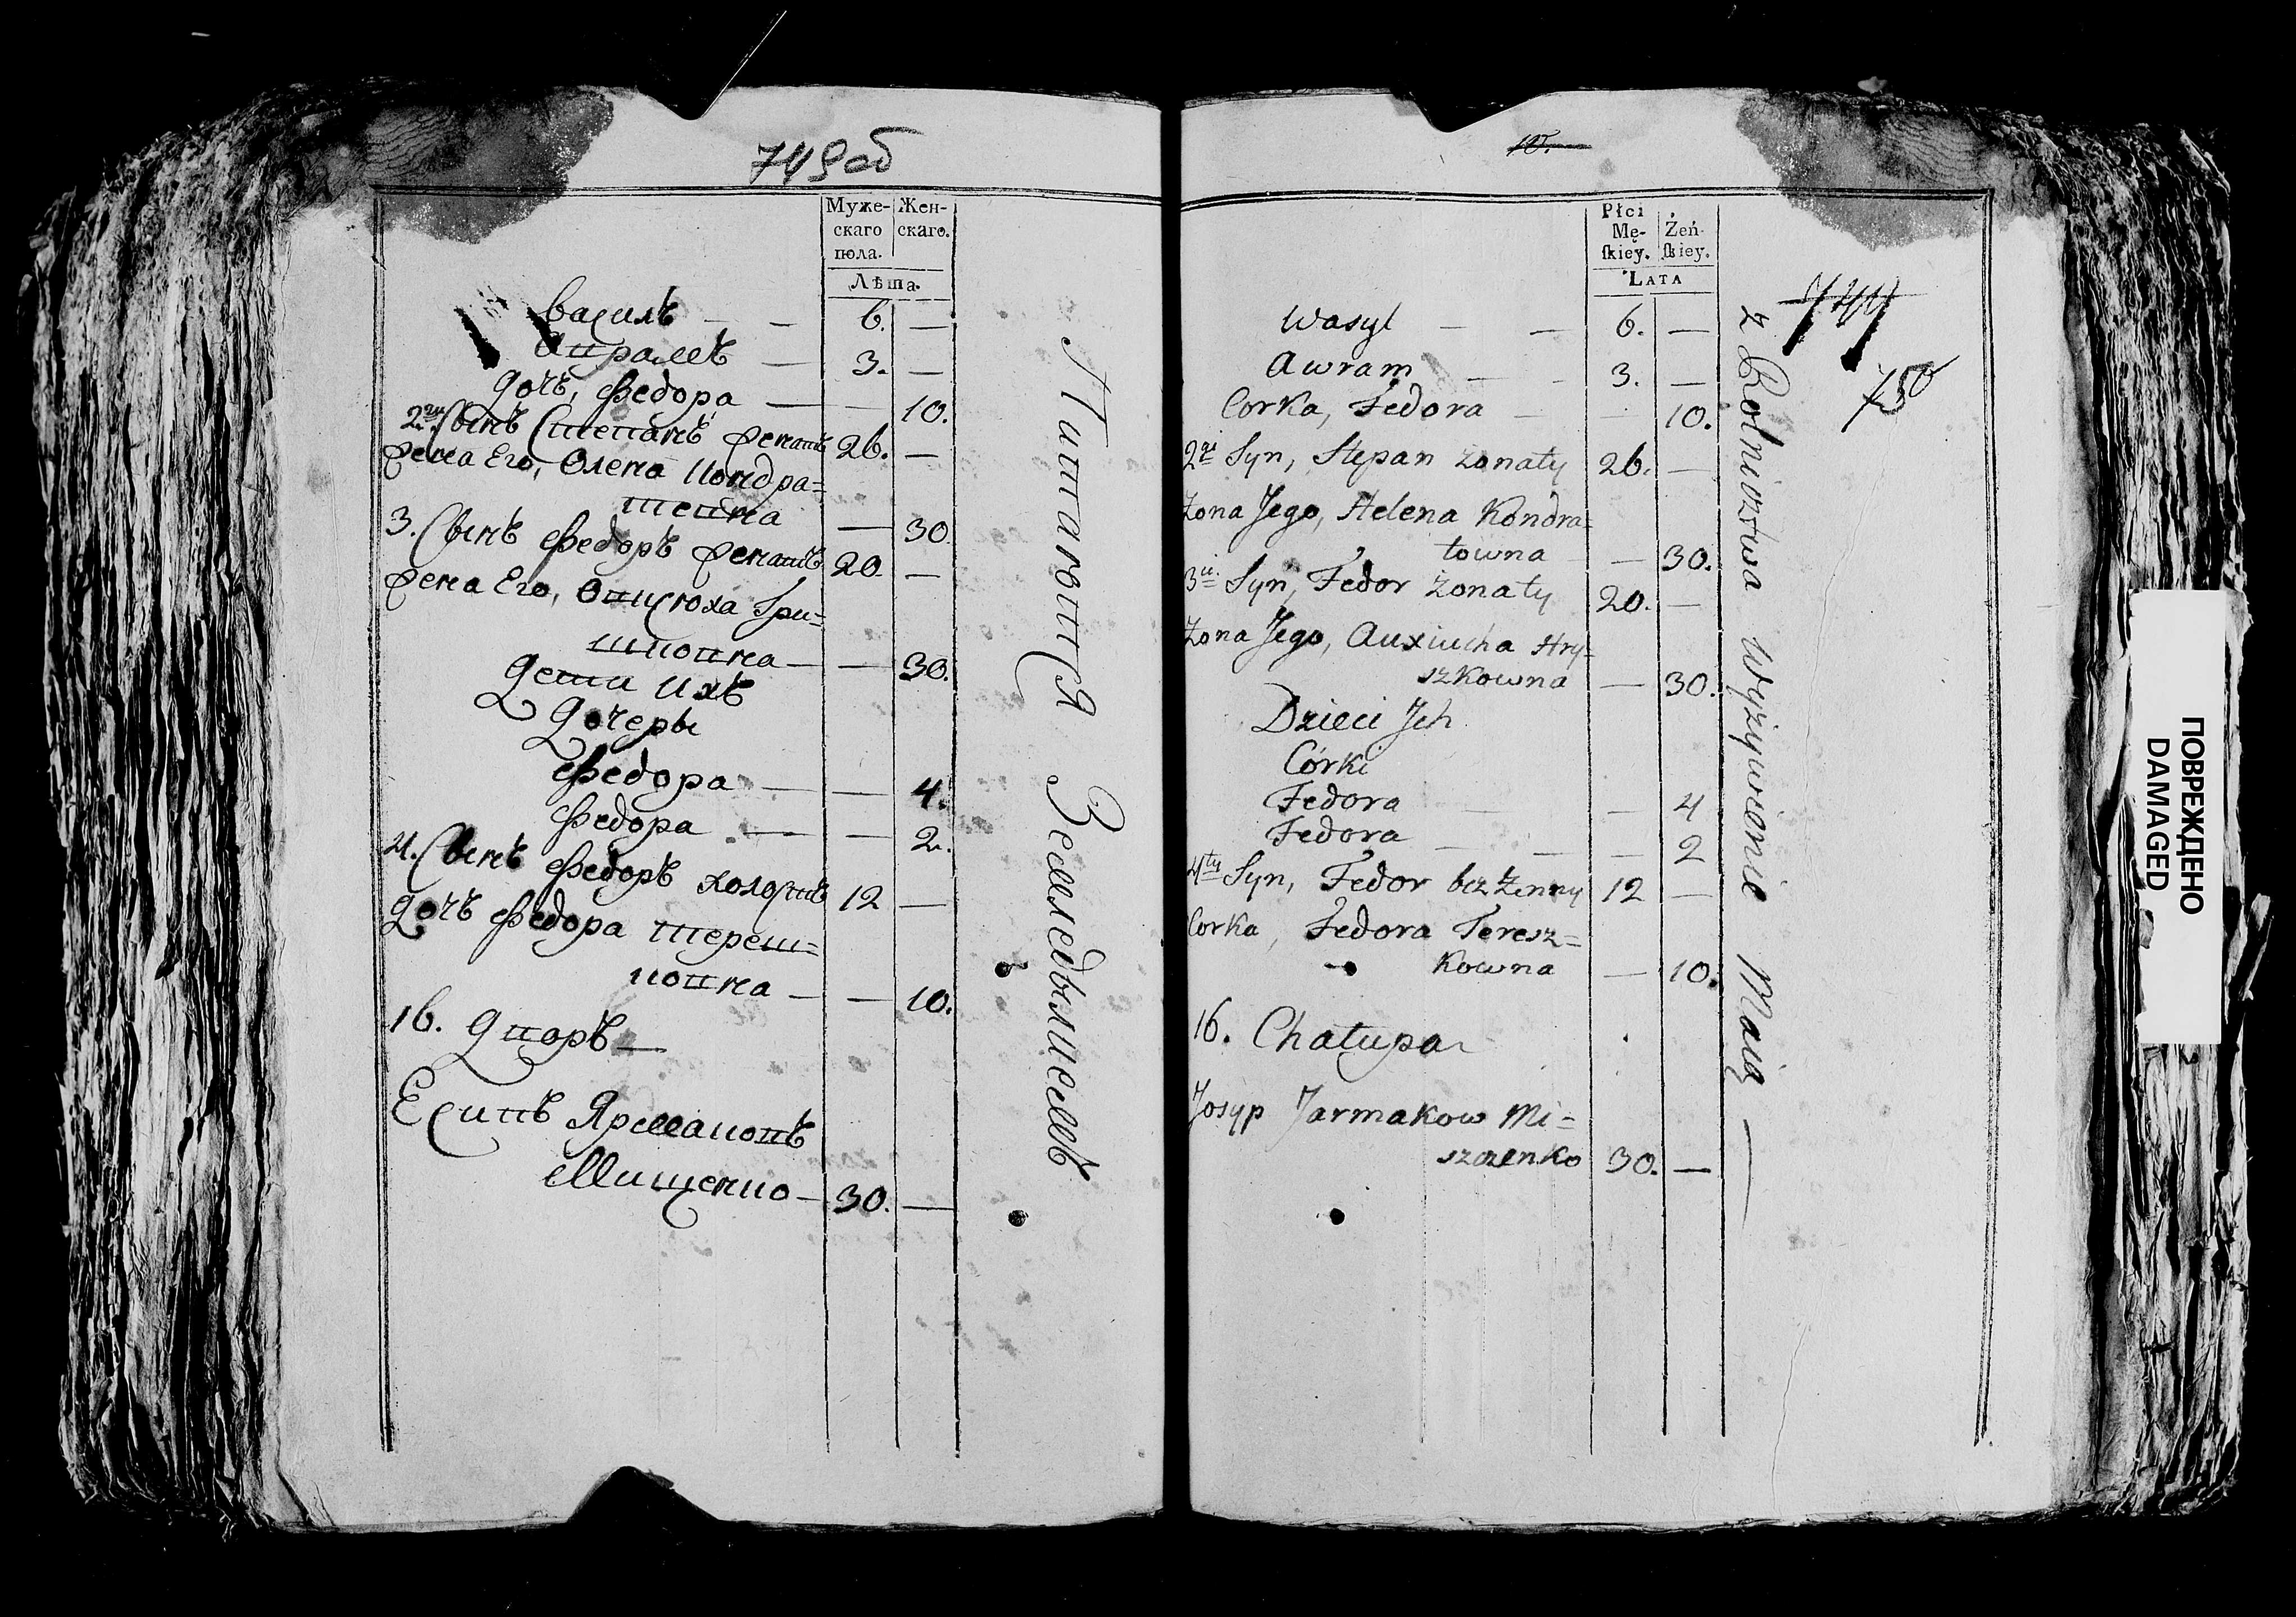 749об
Муже-
скаго
пола.
Жен-
скаго.
Лѣта.
Василь — — 6. —
Аврамъ — 3. —
Дочь, Федора — — 10.
2й Сынъ Степанъ женатъ 26. —
Жена Его, Олена Кондра=
тевна — 30
3. Сынъ Федоръ женатъ 20. —
Жена Его, Овксюха Гри=
шковна — — 30.
Дети Ихъ
Дочеры
Федора — — 4.
Федора — — 2.
4. Сынъ Федоръ холостъ 12 —
Дочь Федора Тереш=
ковна — — 10.
16. Дворъ —
Есипъ Ярмаковъ
Мищенко — 30. —
Питаются Земледѣлиемъ
Płci
Mę-
ſkiey.
Żeń-
ſkiey.
LATA
Wasyl — — 6. —
Awram — — 3. —
Corka, Fedora — — 10.
2gi Syn, Stepan żonaty 26. —
Żona Jego, Helena Kondra=
towna — — 30.
3ci Syn, Fedor żonaty 20. —
Żona Jego, Auxiucha Hry=
szkowna — 30.
Dzieci Jch
Córki
Fedora — — 4
Fedora — — 2
4ty Syn, Fedor bez Żenny 12 —
Corka, Fedora Teresz=
kowna — 10.
16. Chałupa
Josyp Jarmakow Mi=
szczenko 30. —
z Rolniczstwa wyżywienie Maią —
750
ПОВРЕЖДЕНО
DAMAGED